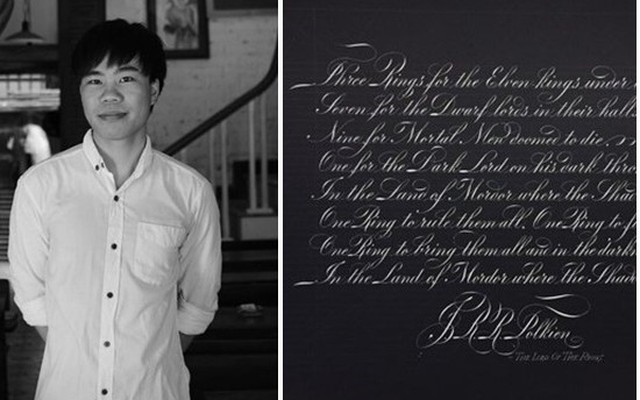 Three Rings for the Elven kings under
Seven for the Dwarf lords in their hall
Nine for Mortal Men doomed to die,
One for the Dark Lord on his dark thro
In the Land of Mordor where the Shad
One Ring to rule them all. One Ring to f
One Ring to bring them all and in the dark
In the Land of Mordor where the Shad
J.R.R. Tolkien
- The Lord Of The Rings